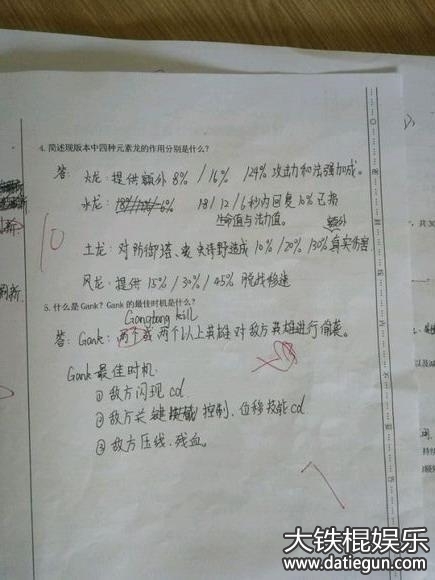 4. 简述现版本中四种元素龙的作用分别是什么？
答： 火龙：提供额外 8% / 16% / 24% 攻击力和法强加成。
水龙： 18 / 12 / 6 秒内回复 10% 已损
生命值与法力值。
额外
土龙：对防御塔、 史诗野造成 10% / 20% / 30% 真实伤害
风龙：提供 15% / 30% / 45% 脱战移速
10
5. 什么是 Gank？Gank 的最佳时机是什么？
Gangbang kill
答：Gank：两个或两个以上英雄对敌方英雄进行偷袭。
Gank 最佳时机
① 敌方闪现 cd
② 敌方关键 控制、位移技能 cd
③ 敌方压线、残血。
7
大铁棍娱乐
www.datiegun.com